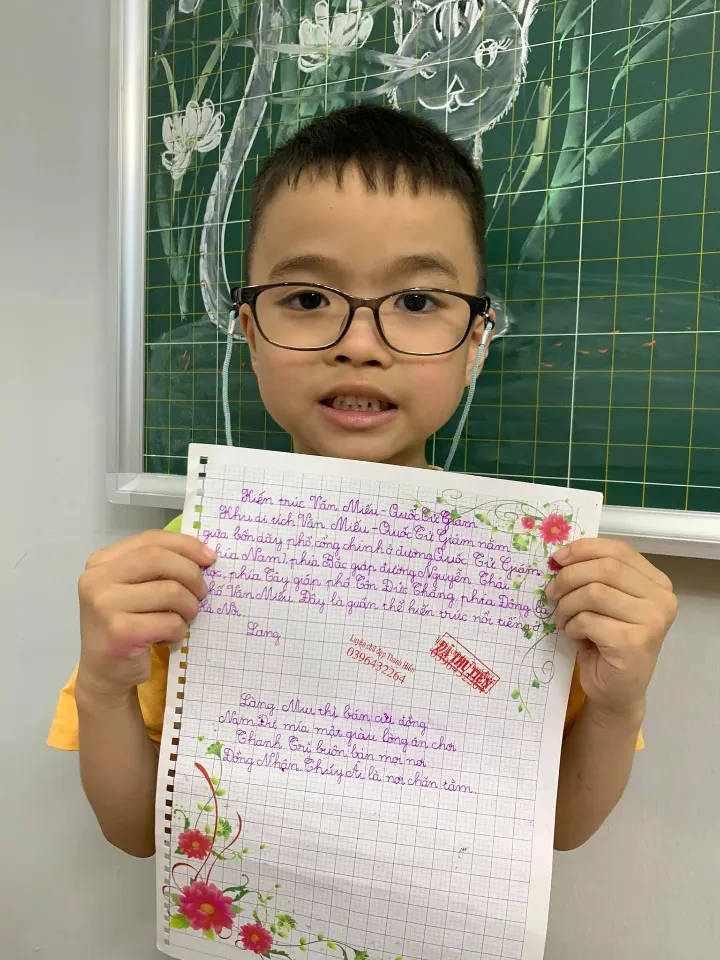 Kiến trúc Văn Miếu - Quốc Tử Giám
Khu di tích Văn Miếu - Quốc Tử Giám nằm
giữa bốn dãy phố, cổng chính ở đường Quốc Tử Giám
phía Nam, phía Bắc giáp đường Nguyễn Thái
Học, phía Tây giáp phố Tôn Đức Thắng, phía Đông là
phố Văn Miếu. Đây là quần thể kiến trúc nổi tiếng ở
Hà Nội.
Lang
Luyện chữ đẹp Thanh Hiền
0396432264
0396432264
Làng Mưu thì bán củi đồng
Nam Dư mía mật giàu lòng ăn chơi
Thanh Trì buôn bán mọi nơi
Đồng Nhân, Thúy Ái là nơi chăn tằm.